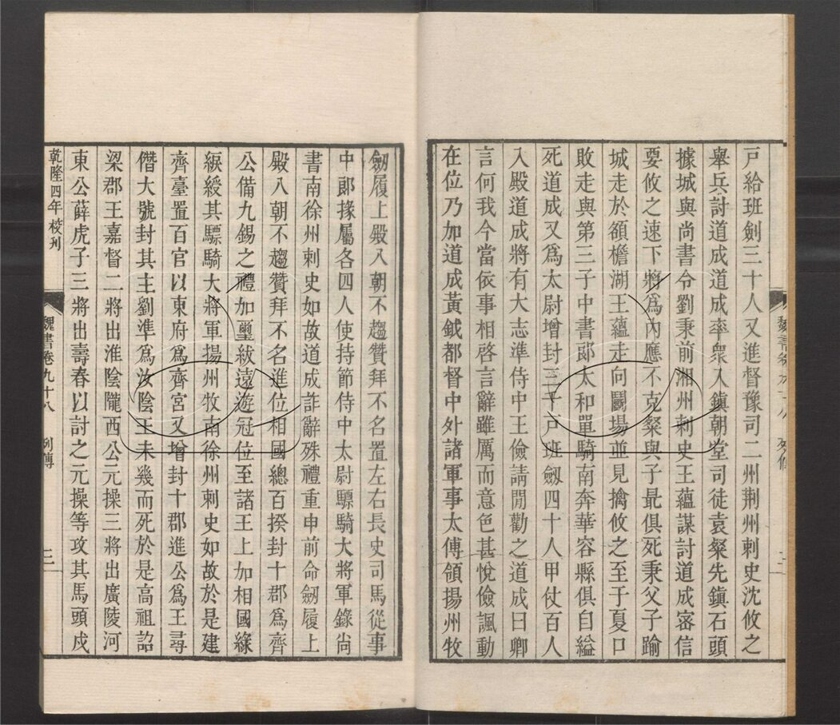 戸給班劍三十人又進督豫司二州荆州刺史沈攸之
舉兵討道成道成率衆入鎭朝堂司徒袁粲先鎭石頭
據城與尚書令劉秉前湘州刺史王蘊謀討道成密信
要攸之速下將爲内應不克粲與子最俱死秉父子踰
城走於額檐湖王蘊走向鬬場並見擒攸之至于夏口
敗走與第三子中書郎太和單騎南奔華容縣俱自縊
死道成又爲太尉增封三千戸班劔四十人甲仗百人
入殿道成將有大志準侍中王儉請閒勸之道成曰卿
言何我今當依事相啓言辭雖厲而意色甚悦儉諷動
在位乃加道成黃鉞都督中外諸軍事太傅領揚州牧
劔履上殿入朝不趨贊拜不名置左右長史司馬從事
中郎掾屬各四人使持節侍中太尉驃騎大將軍錄尚
書南徐州刺史如故道成詐辭殊禮重申前命劔履上
殿入朝不趨贊拜不名進位相國總百揆封十郡爲齊
公備九錫之禮加璽紱遠遊冠位至諸王上加相國綠
綟綬其驃騎大將軍揚州牧南徐州刺史如故於是建
齊臺置百官以東府爲齊宮又增封十郡進公爲王尋
僭大號封其主劉準爲汝陰王未幾而死於是高祖詔
梁郡王嘉督二將出淮陰隴西公元操三將出廣陵河
東公薛虎子三將出壽春以討之元操等攻其馬頭戍
乾隆四年校刋
魏書卷九十八 列傳 三